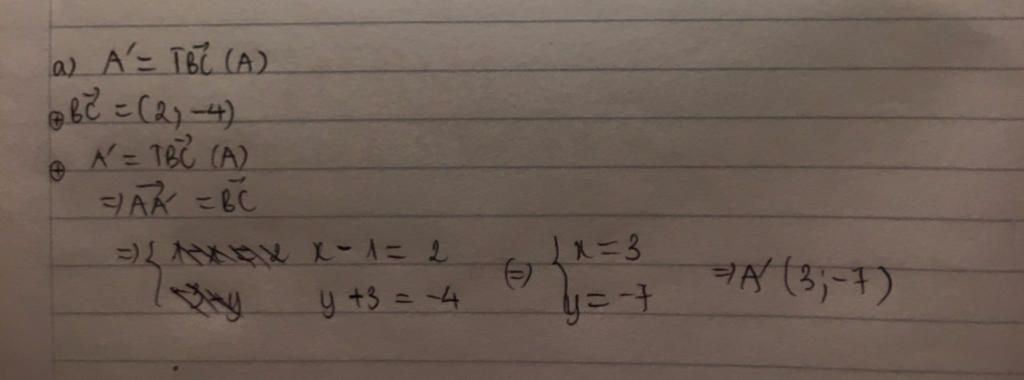 a) A' = TBC⃗ (A)
⊕ BC⃗ = (2; -4)
⊕ A' = TBC⃗ (A)
=> AA'⃗ = BC⃗
=> { x - 1 = 2 (=) { x = 3
y + 3 = -4 y = -7 => A' (3; -7)